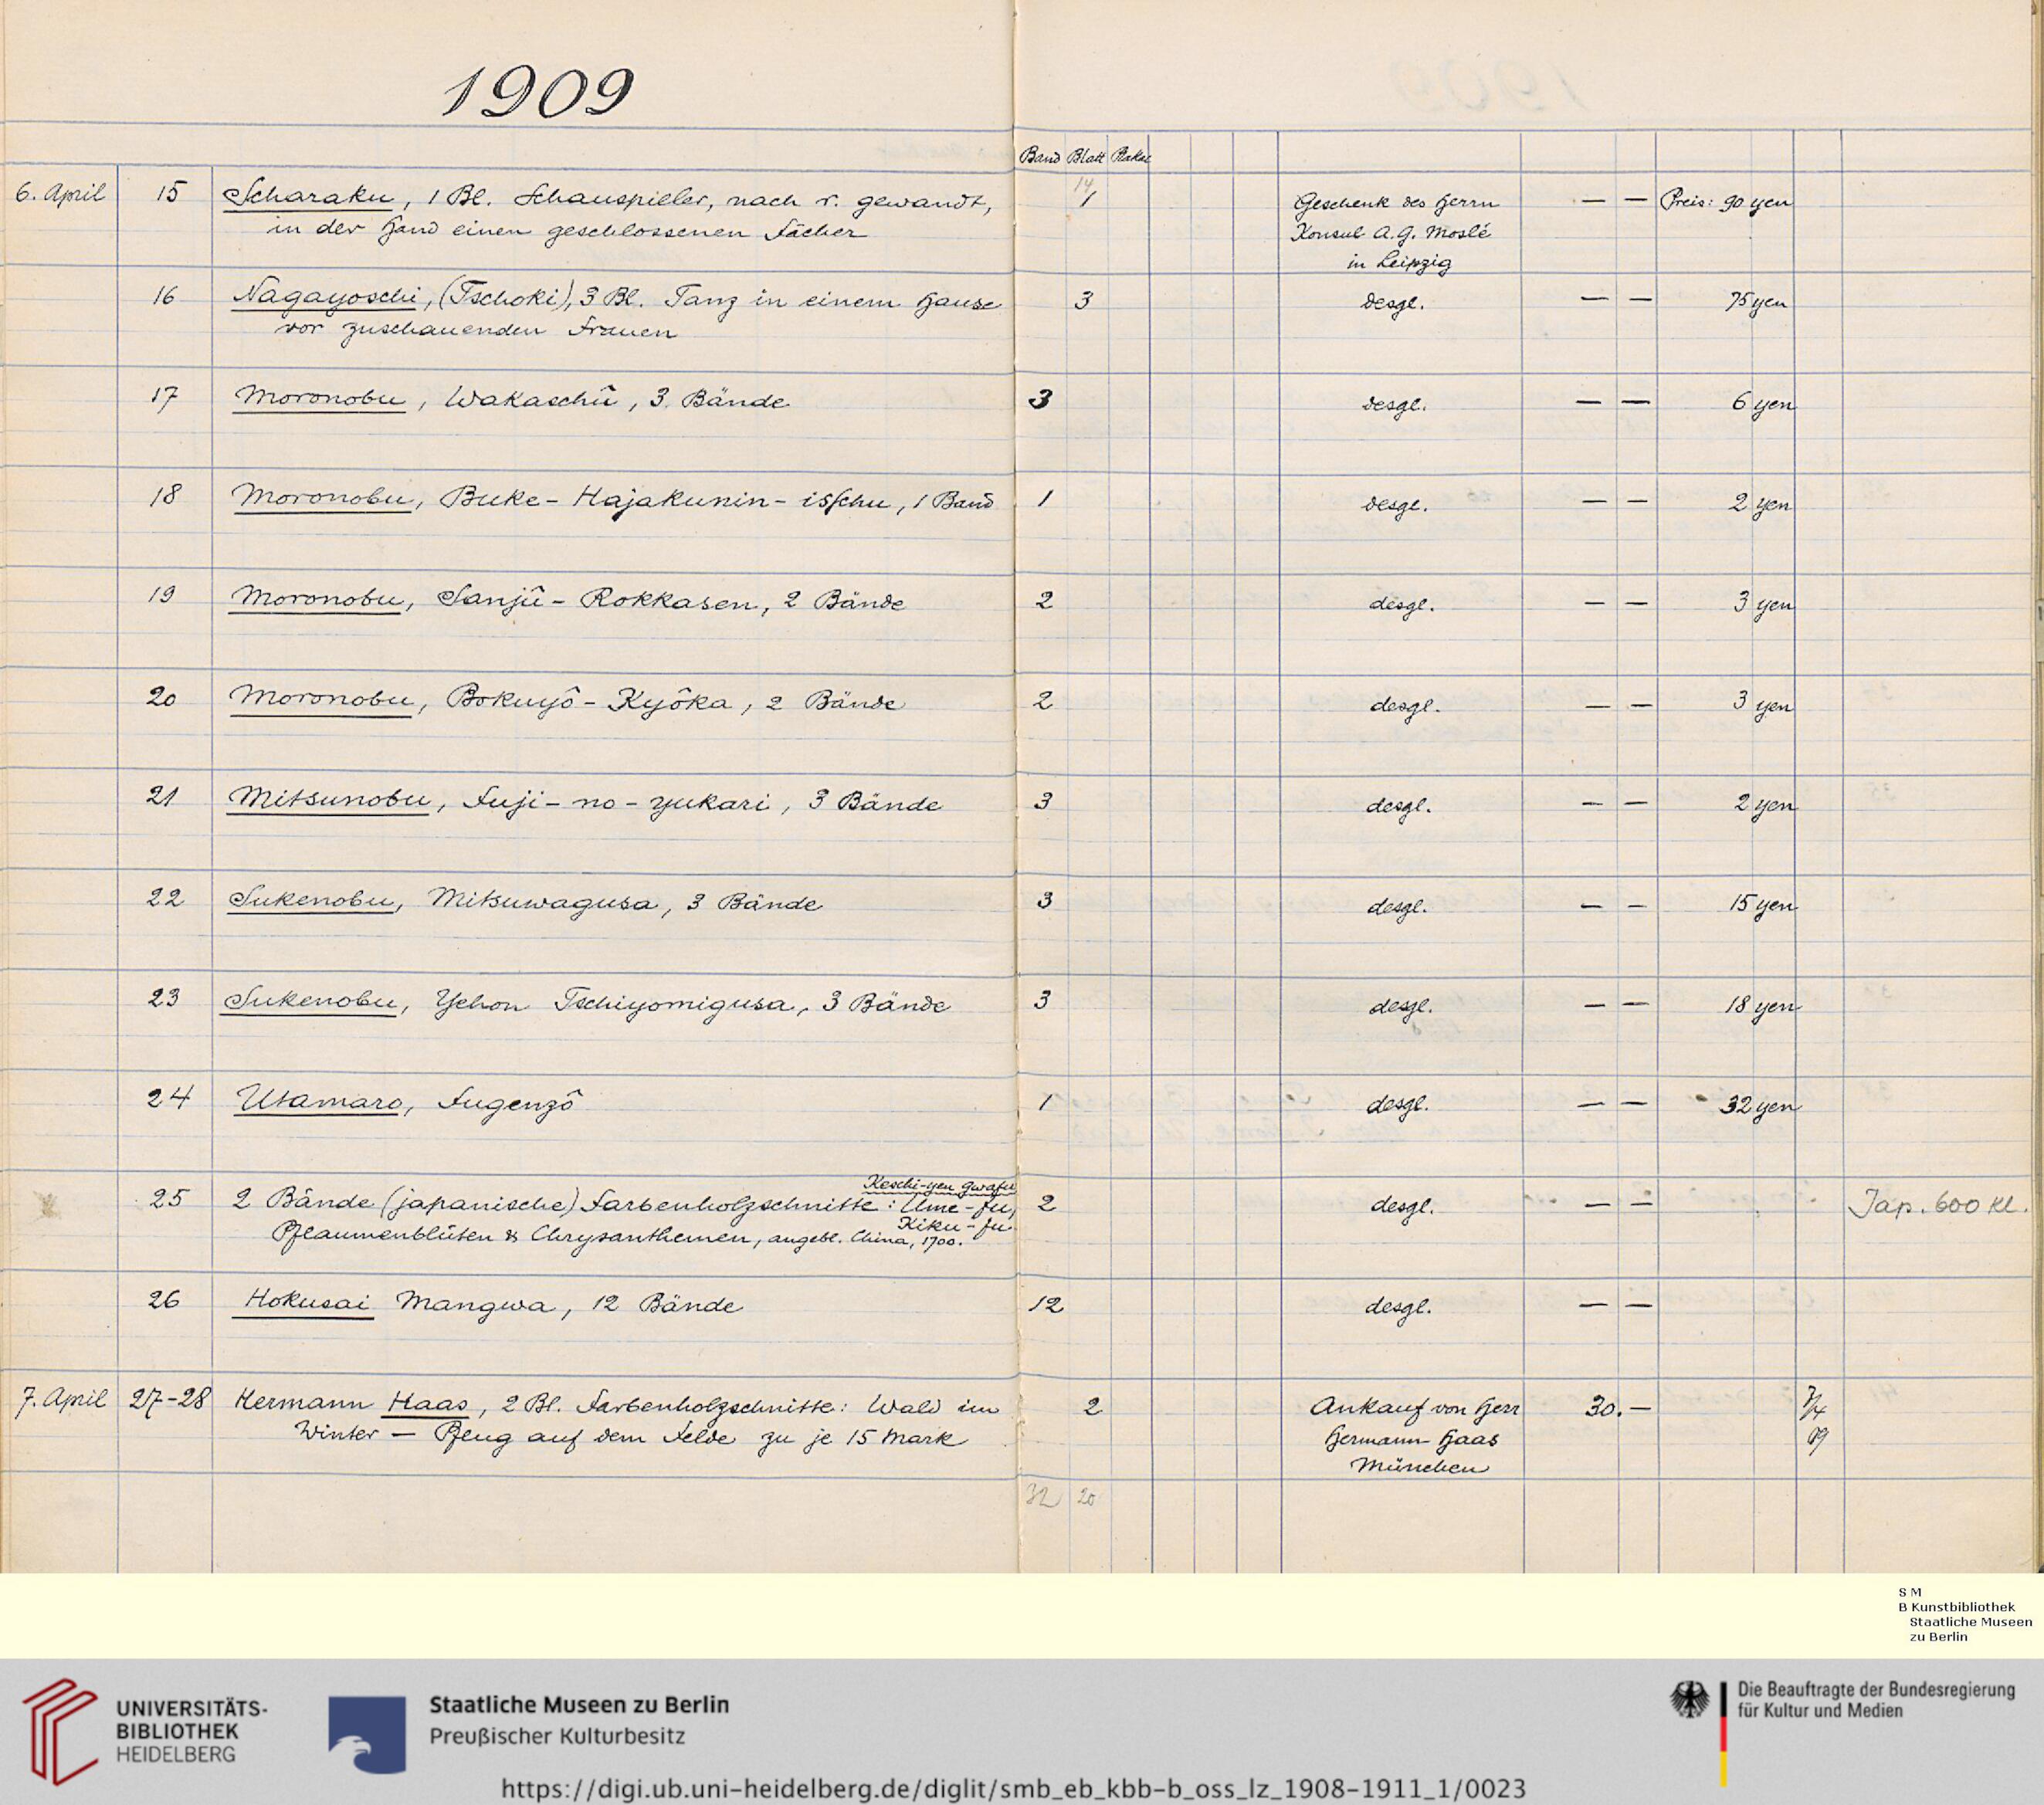 1909
Band Blatt Plakat
14
6. April 15 Scharaku, 1 Bl. Schauspieler, nach r. gewandt, 1 Geschenk des Herrn — — Preis: 90 yen
in der Hand einen geschlossenen Fächer Konsul A. G. Moslé
in Leipzig
16 Nagayoschi, (Tschoki), 3 Bl. Tanz in einem Hause 3 desgl. — — 75 yen
vor zuschauenden Frauen
17 Moronobu, Wakaschû, 3 Bände 3 desgl. — — 6 yen
18 Moronobu, Buke-Hajakunin-isschu, 1 Band 1 desgl. — — 2 yen
19 Moronobu, Sanjû-Rokkasen, 2 Bände 2 desgl. — — 3 yen
20 Moronobu, Bokuyô-Kyôka, 2 Bände 2 desgl. — — 3 yen
21 Mitsunobu, Fuji-no-yukari, 3 Bände 3 desgl. — — 2 yen
22 Sukenobu, Mitsuwagusa, 3 Bände 3 desgl. — — 15 yen
23 Sukenobu, Yehon Tschiyomigusa, 3 Bände 3 desgl. — — 18 yen
24 Utamaro, Fugenzô 1 desgl. — — 32 yen
Keschi-yen gwafu
25 2 Bände (japanische) Farbenholzschnitte: Ume-fu, 2 desgl. — — Jap. 600 kl.
Kiku-fu
Pflaumenblüten & Chrysanthemen, angebl. China, 1700.
26 Hokusai Mangwa, 12 Bände 12 desgl. — —
7. April 27-28 Hermann Haas, 2 Bl. Farbenholzschnitte: Wald im 2 Ankauf von Herr 30.— 7/4
Winter — Pflug auf dem Felde zu je 15 Mark Hermann Haas 09
München
32 20
S M
B Kunstbibliothek
Staatliche Museen
zu Berlin
UNIVERSITÄTS-
BIBLIOTHEK
HEIDELBERG
Staatliche Museen zu Berlin
Preußischer Kulturbesitz
Die Beauftragte der Bundesregierung
für Kultur und Medien
https://digi.ub.uni-heidelberg.de/diglit/smb_eb_kbb-b_oss_lz_1908-1911_1/0023